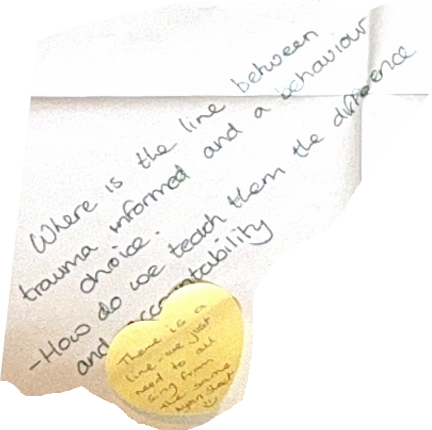 Where is the line between
trauma informed and a behaviour
choice.
-How do we teach them the difference
and accountability
There is a
line - we just
need to all
sing from
the same
hymn sheet